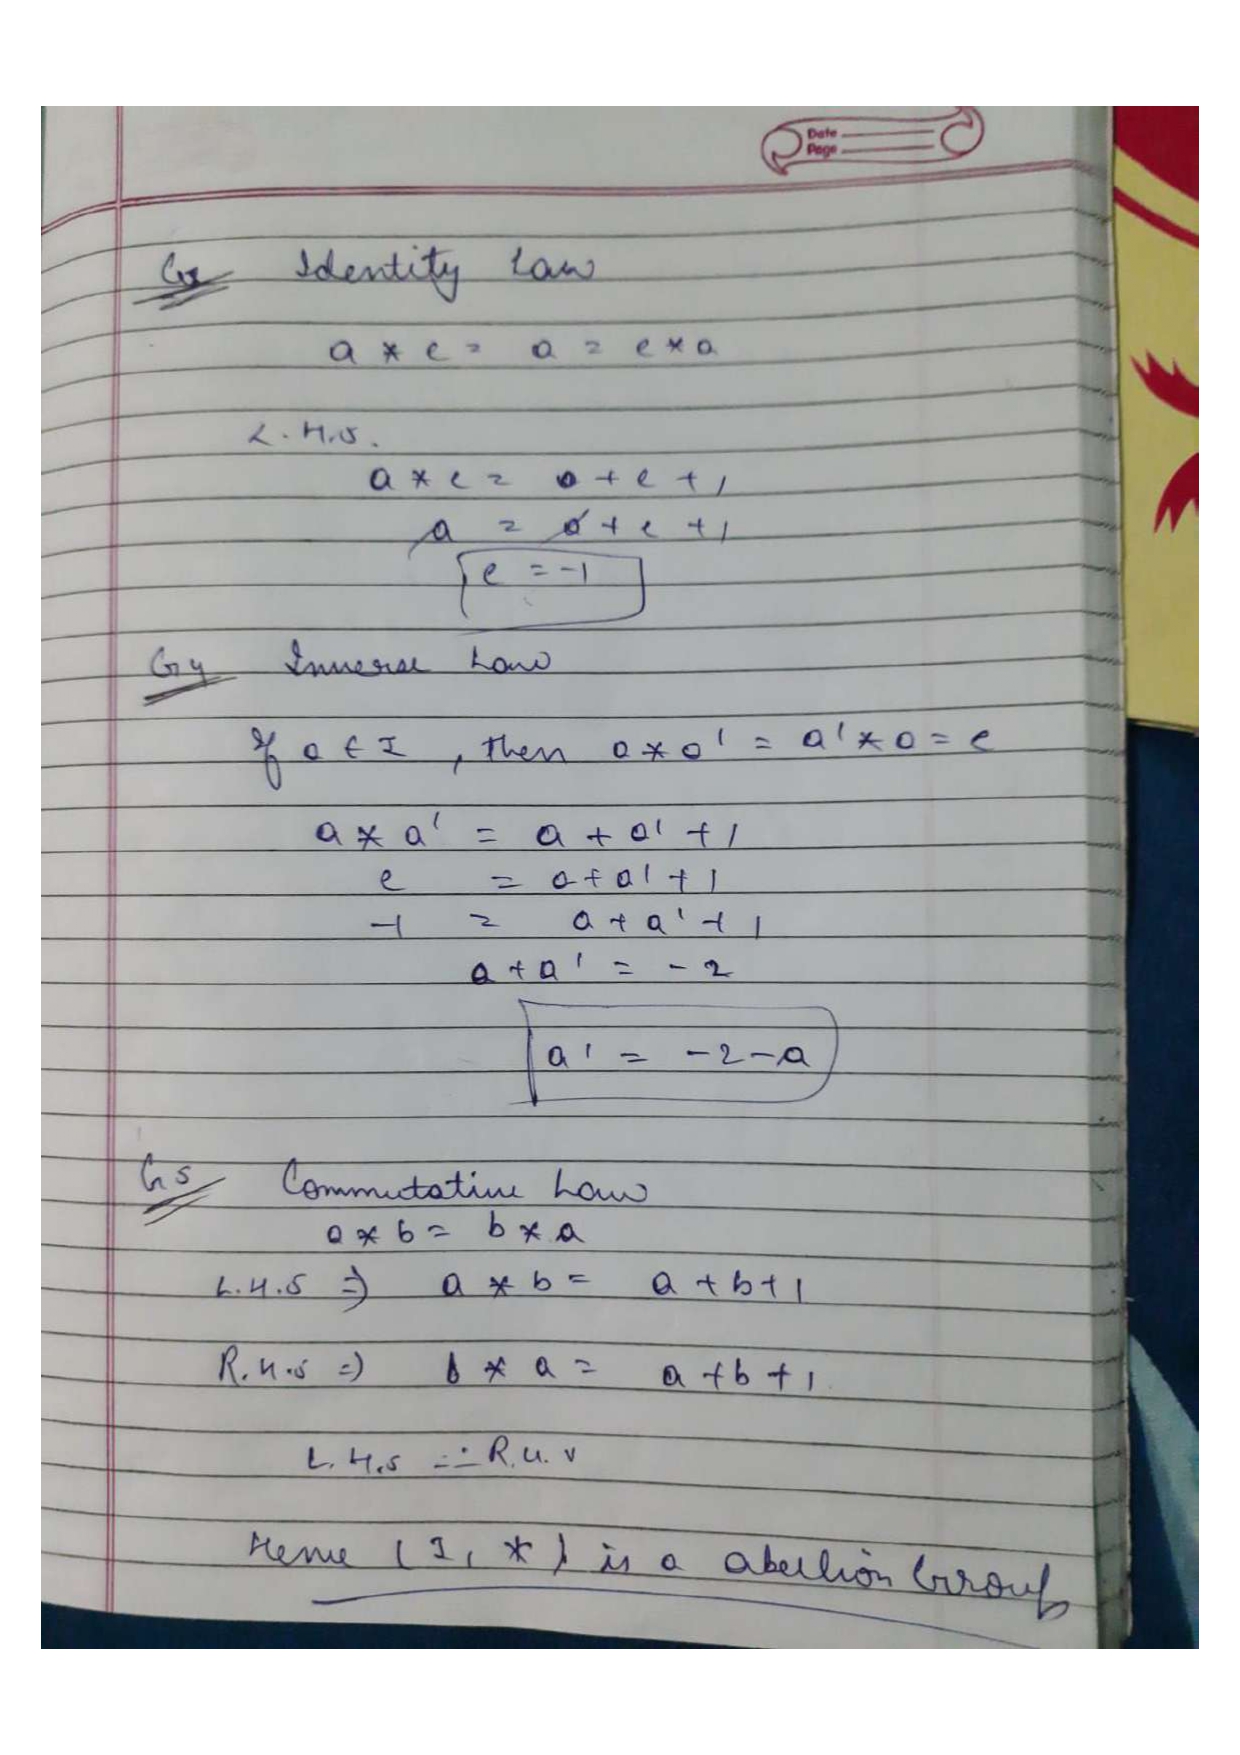 Date
Page
G3 Identity Law
a * e = a = e * a
L.H.S.
a * e = a + e + 1
a = a + e + 1
e = -1
G4 Inverse Law
If a ∈ I, then a * a' = a' * a = e
a * a' = a + a' + 1
e = a + a' + 1
-1 = a + a' + 1
a + a' = -2
a' = -2 - a
G5 Commutative Law
a * b = b * a
L.H.S ⇒ a * b = a + b + 1
R.H.S ⇒ b * a = a + b + 1
L.H.S = R.H.S
Hence (I, *) is a abellion Group